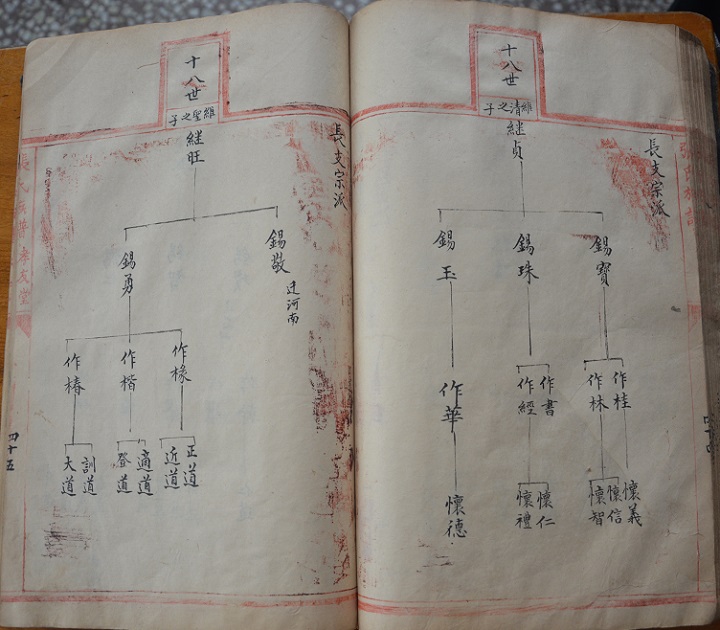 十八世
維清之子
長支宗派
継貞
錫寶
錫珠
錫玉
作桂
作林
作書
作經
作華
懷義
懷信
懷智
懷仁
懷禮
懷德
十八世
維聖之子
長支宗派
継旺
錫敬
迁河南
錫勇
作椽
作楷
作椿
正道
近道
適道
登道
訓道
大道
四十五